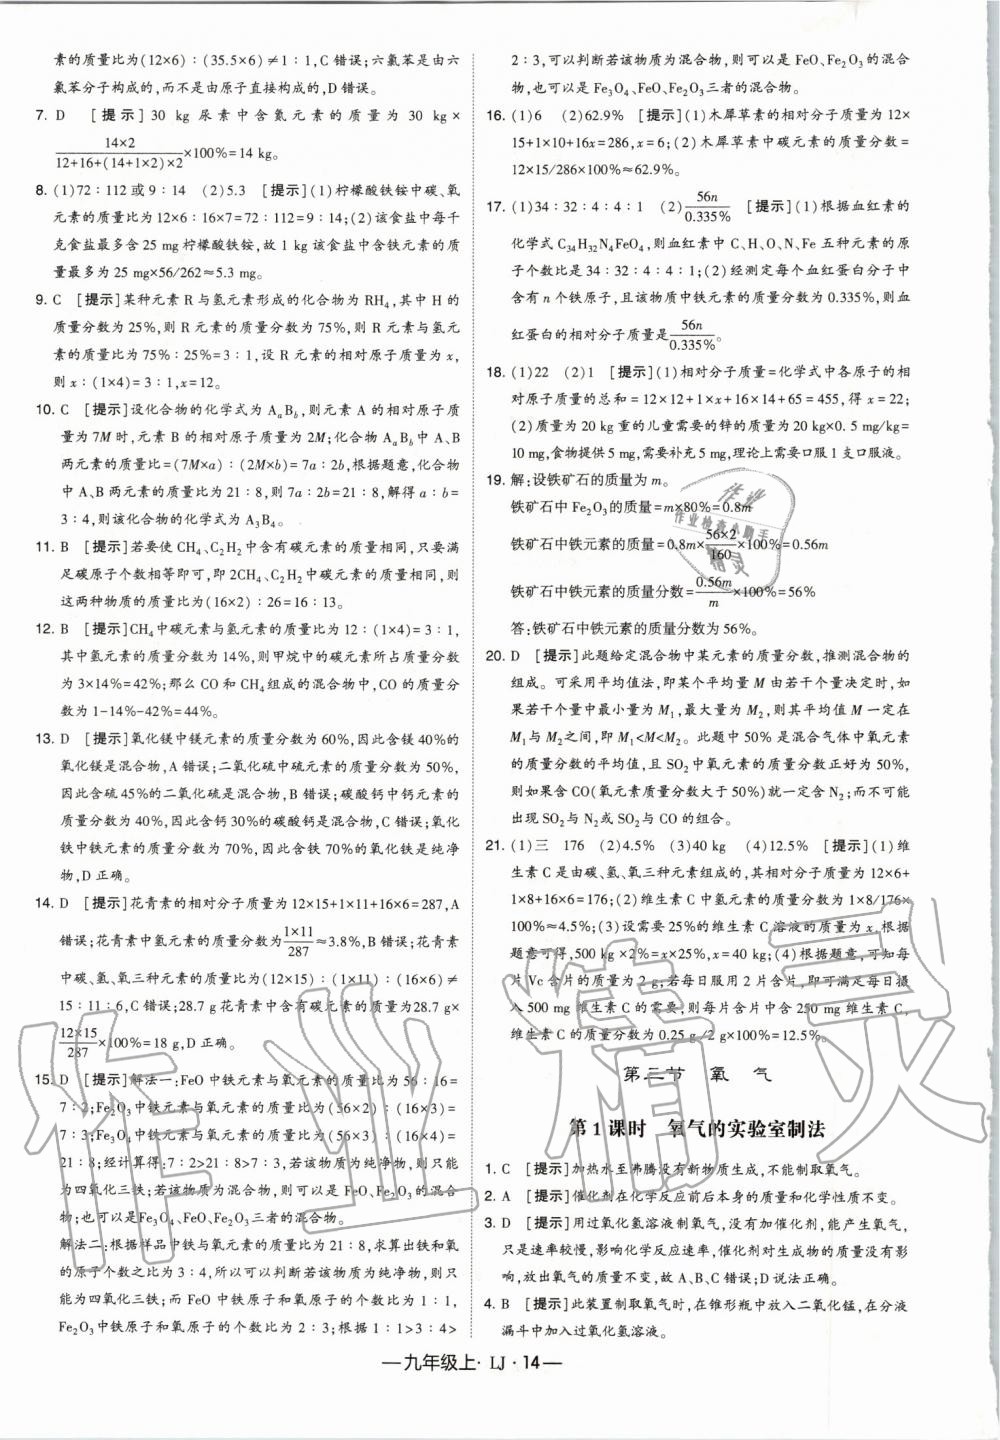 素的质量比为(12×6)∶(35.5×6)≠1∶1,C错误;六氯苯是由六
氯苯分子构成的,而不是由原子直接构成的,D错误。
7. D [提示]30 kg 尿素中含氮元素的质量为 30 kg×
14×2/12+16+(14+1×2)×2×100%=14 kg。
8. (1)72∶112或9∶14 (2)5.3 [提示](1)柠檬酸铁铵中碳、氧
元素的质量比为12×6∶16×7=72∶112=9∶14;(2)该食盐中每千
克食盐最多含25 mg柠檬酸铁铵,故1 kg该食盐中含铁元素的质
量最多为25 mg×56/262≈5.3 mg。
9. C [提示]某种元素R与氢元素形成的化合物为RH4,其中H的
质量分数为25%,则R元素的质量分数为75%,则R元素与氢元
素的质量比为75%∶25%=3∶1,设R元素的相对原子质量为x,
则x∶(1×4)=3∶1,x=12。
10. C [提示]设化合物的化学式为AaBb,则元素A的相对原子质
量为7M时,元素B的相对原子质量为2M;化合物AaBb中A、B
两元素的质量比=(7M×a)∶(2M×b)=7a∶2b,根据题意,化合物
中A、B两元素的质量比为21∶8,则7a∶2b=21∶8,解得a∶b=
3∶4,则该化合物的化学式为A3B4。
11. B [提示]若要使CH4、C2H2中含有碳元素的质量相同,只要满
足碳原子个数相等即可,即2CH4、C2H2中碳元素的质量相同,则
这两种物质的质量比为(16×2)∶26=16∶13。
12. B [提示]CH4中碳元素与氢元素的质量比为12∶(1×4)=3∶1,
其中氢元素的质量分数为14%,则甲烷中的碳元素所占质量分数
为3×14%=42%;那么CO和CH4组成的混合物中,CO的质量分
数为1-14%-42%=44%。
13. D [提示]氧化镁中镁元素的质量分数为60%,因此含镁40%的
氧化镁是混合物,A错误;二氧化硫中硫元素的质量分数为50%,
因此含硫45%的二氧化硫是混合物,B错误;碳酸钙中钙元素的
质量分数为40%,因此含钙30%的碳酸钙是混合物,C错误;氧化
铁中铁元素的质量分数为70%,因此含铁70%的氧化铁是纯净
物,D正确。
14. D [提示]花青素的相对分子质量为12×15+1×11+16×6=287,A
错误;花青素中氢元素的质量分数为1×11/287≈3.8%,B错误;花青素
中碳、氢、氧三种元素的质量比为(12×15)∶(1×11)∶(16×6)≠
15∶11∶6,C错误;28.7 g花青素中含有碳元素的质量为28.7 g×
12×15/287×100%=18 g,D正确。
15. D [提示]解法一:FeO中铁元素与氧元素的质量比为56∶16=
7∶2;Fe2O3中铁元素与氧元素的质量比为(56×2)∶(16×3)=
7∶3;Fe3O4中铁元素与氧元素的质量比为(56×3)∶(16×4)=
21∶8;经计算得:7∶2>21∶8>7∶3,若该物质为纯净物,则只能
为四氧化三铁;若该物质为混合物,则可以是FeO、Fe2O3的混合
物;也可以是Fe3O4、FeO、Fe2O3三者的混合物。
解法二:根据样品中铁与氧元素的质量比为21∶8,求算出铁和氧
的原子个数之比为3∶4,所以可以判断若该物质为纯净物,则只
能为四氧化三铁;而FeO中铁原子和氧原子的个数比为1∶1,
Fe2O3中铁原子和氧原子的个数比为2∶3;根据1∶1>3∶4>
2∶3,可以判断若该物质为混合物,则可以是FeO、Fe2O3的混合
物,也可以是Fe3O4、FeO、Fe2O3三者的混合物。
16. (1)6 (2)62.9% [提示](1)木犀草素的相对分子质量为12×
15+1×10+16x=286,x=6;(2)木犀草素中碳元素的质量分数=
12×15/286×100%≈62.9%。
17. (1)34∶32∶4∶4∶1 (2)56n/0.335% [提示](1)根据血红素的
化学式C34H32N4FeO4,则血红素中C、H、O、N、Fe五种元素的原
子个数比为34∶32∶4∶4∶1;(2)经测定每个血红蛋白分子中
含有n个铁原子,且该物质中铁元素的质量分数为0.335%,则血
红蛋白的相对分子质量是56n/0.335%。
18. (1)22 (2)1 [提示](1)相对分子质量=化学式中各原子的相
对原子质量的总和=12×12+1×x+16×14+65=455,得x=22;
(2)质量为20 kg重的儿童需要的锌的质量为20 kg×0.5 mg/kg=
10 mg,食物提供5 mg,需要补充5 mg,理论上需要口服1支口服液。
19. 解:设铁矿石的质量为m。
铁矿石中Fe2O3的质量=m×80%=0.8m
铁矿石中铁元素的质量=0.8m×56×2/160×100%=0.56m
铁矿石中铁元素的质量分数=0.56m/m×100%=56%
答:铁矿石中铁元素的质量分数为56%。
20. D [提示]此题给定混合物中某元素的质量分数,推测混合物的
组成。可采用平均值法,即某个平均量M由若干个量决定时,如
果若干个量中最小量为M1,最大量为M2,则其平均值M一定在
M1与M2之间,即M1<M<M2。此题中50%是混合气体中氧元素
的质量分数的平均值,且SO2中氧元素的质量分数正好为50%,
则如果含CO(氧元素质量分数大于50%)就一定含N2;而不可能
出现SO2与N2或SO2与CO的组合。
21. (1)三 176 (2)4.5% (3)40 kg (4)12.5% [提示](1)维
生素C是由碳、氢、氧三种元素组成的,其相对分子质量为12×6+
1×8+16×6=176;(2)维生素C中氢元素的质量分数为1×8/176×
100%≈4.5%;(3)设需要25%的维生素C溶液的质量为x,根据
题意可得,500 kg×2%=x×25%,x=40 kg;(4)根据题意,可知每
片Vc含片的质量为2 g,若每日服用2片含片,即可满足每日摄
入500 mg维生素C的需要,则每片含片中含250 mg维生素C,
维生素C的质量分数为0.25 g/2 g×100%=12.5%。
第三节 氧 气
第1课时 氧气的实验室制法
1. C [提示]加热水至沸腾没有新物质生成,不能制取氧气。
2. A [提示]催化剂在化学反应前后本身的质量和化学性质不变。
3. D [提示]用过氧化氢溶液制氧气,没有加催化剂,能产生氧气,
只是速率较慢,影响化学反应速率,催化剂对生成物的质量没有影
响,放出氧气的质量不变,故A、B、C错误;D说法正确。
4. B [提示]此装置制取氧气时,在锥形瓶中放入二氧化锰,在分液
漏斗中加入过氧化氢溶液。
—九年级上·LJ·14—
作业精灵
作业
作业检查小助手
精灵